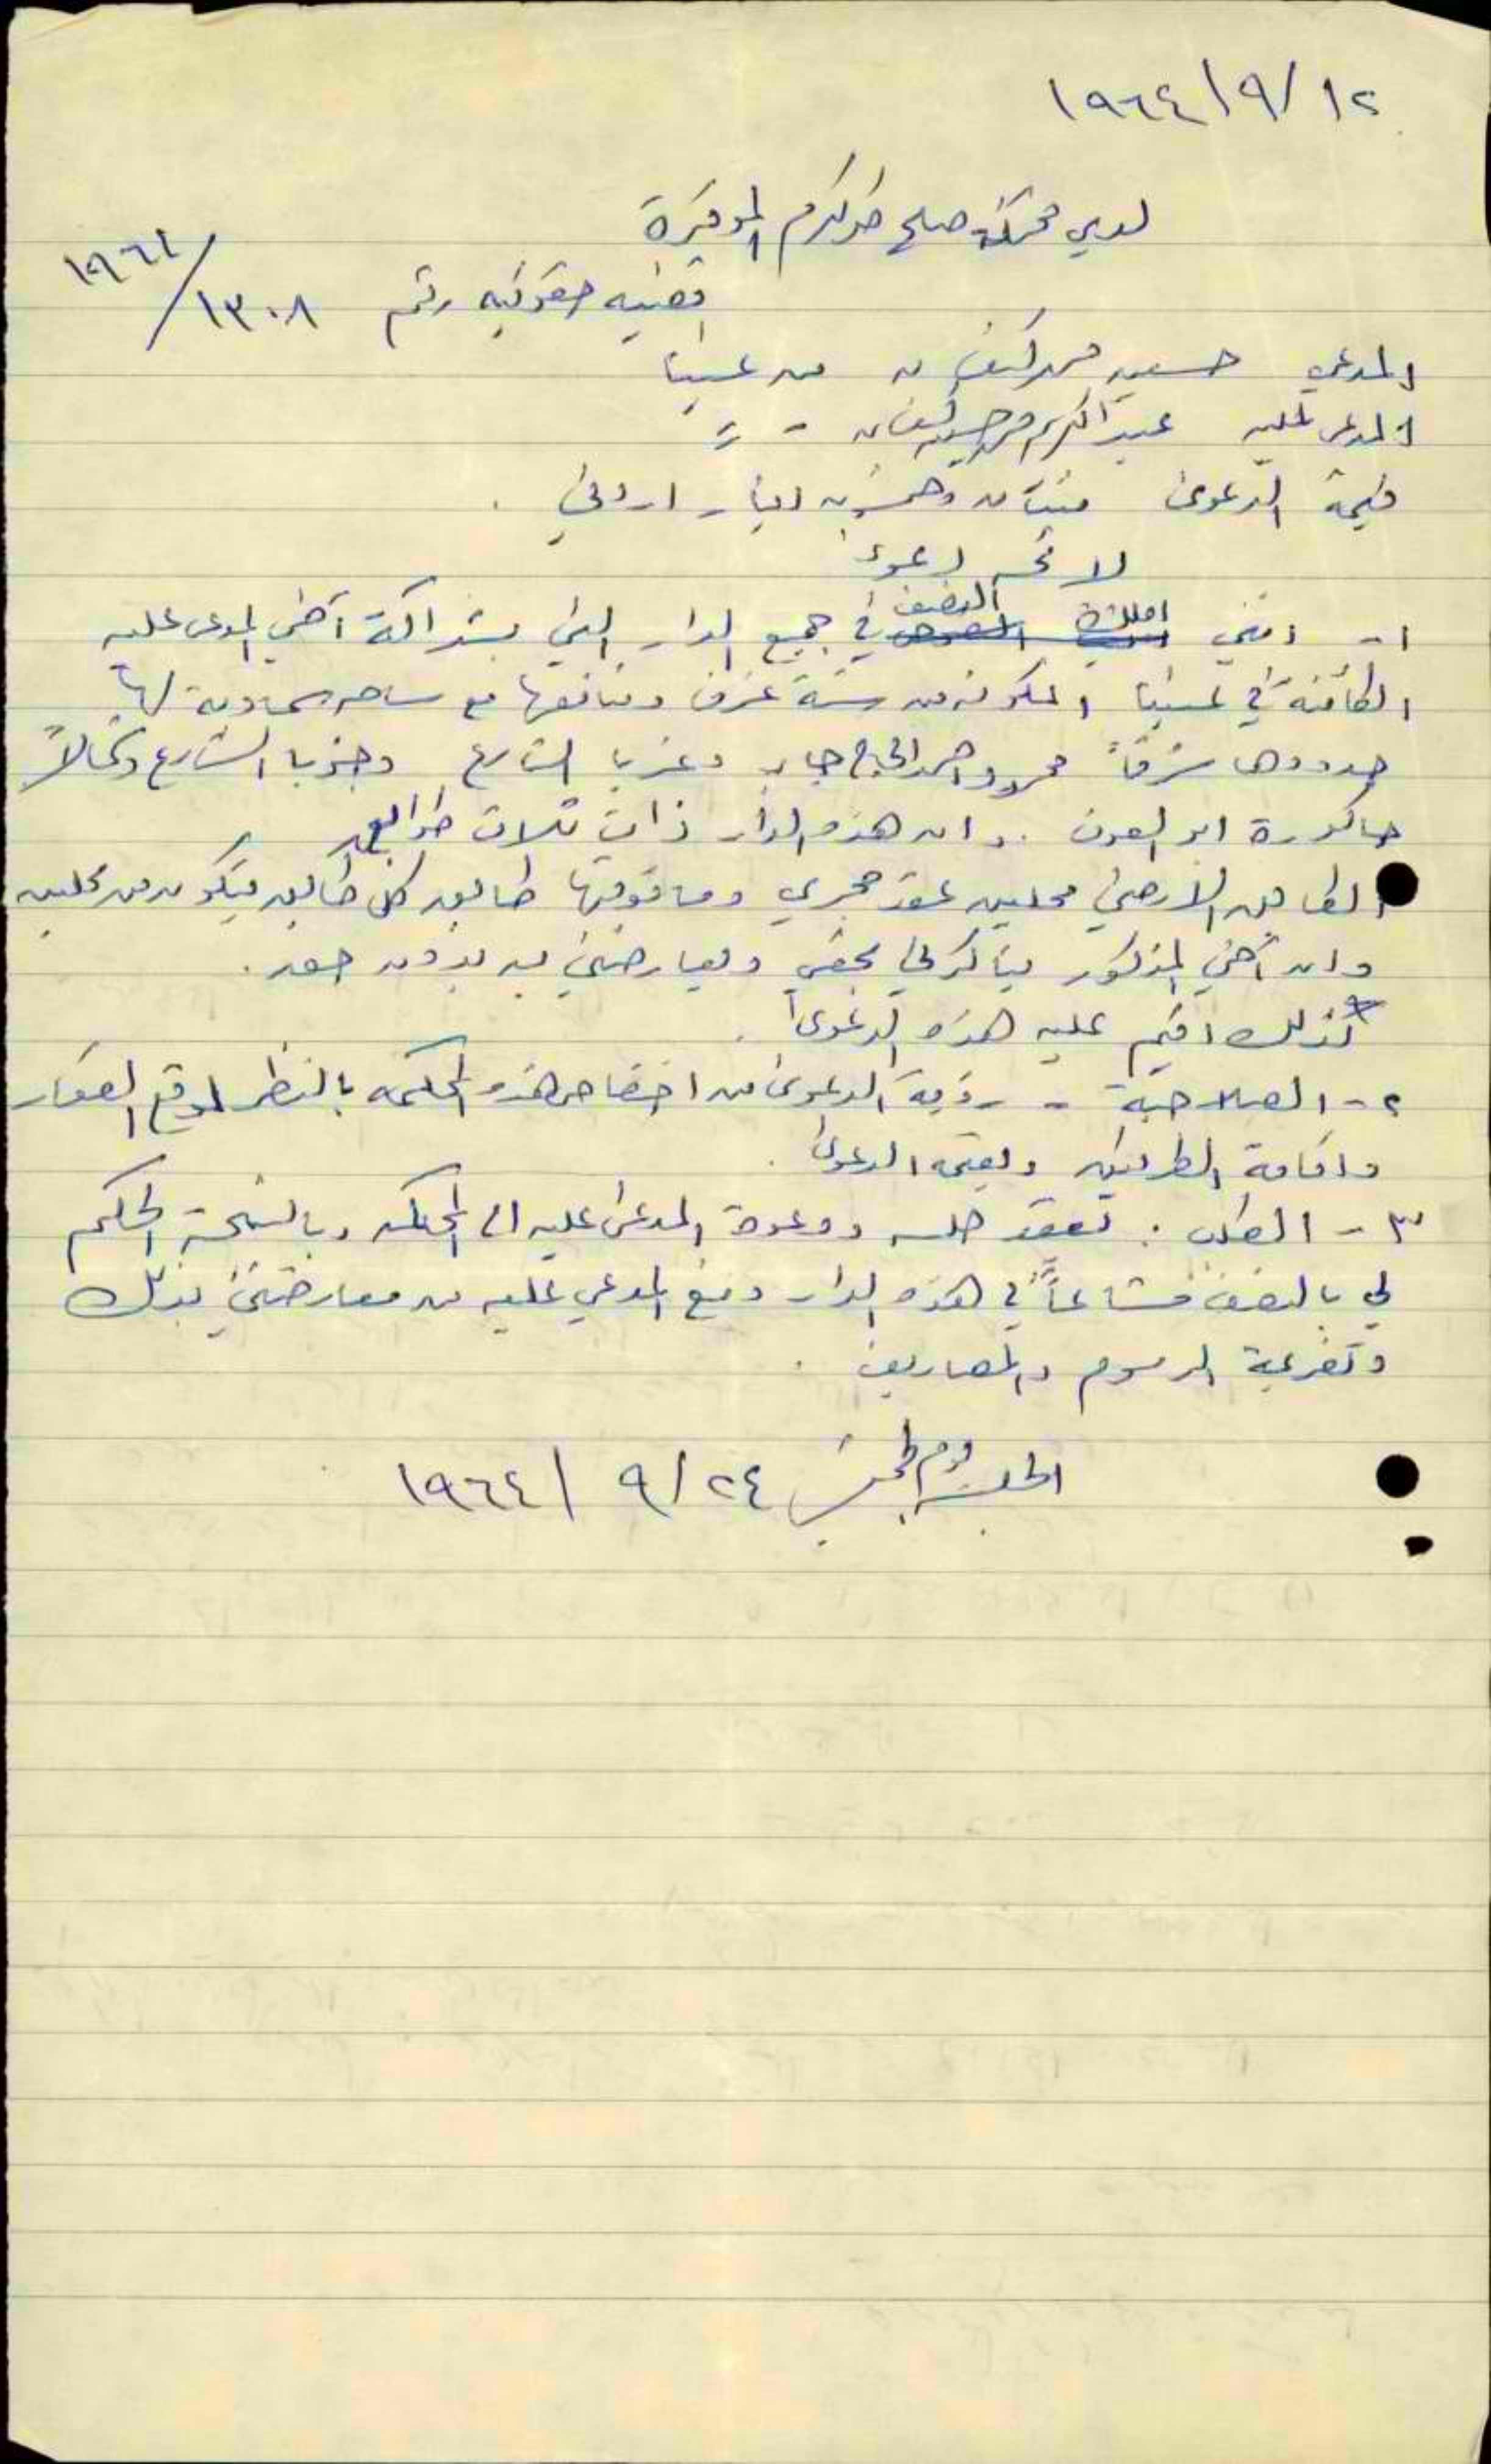 ١٢/٩/١٩٦٤
لدى محكمة صلح طولكرم الموقرة
قضيه حقوقيه رقم ١٣٠٨/١٩٦٤
المدعي حسين محمد من عنبتا
المدعى عليه عبد الكريم محمد حسين - =
قيمة الدعوى مئتان وخمسون دينار اردني .
لائحه دعوى
١- انني املك النصف في جميع الدار التي بشراكة اخي المدعى عليه
الكائنة في عنبتا المكونه من ستة غرف ومنافعها مع ساحه سماوية لها
حدودها شرقاً محمود احمد الحاج جابر وغربا الشارع وجنوبا الشارع وشمالاً
حاكورة ابو العون . وان هذه الدار ذات ثلاث طوابق
الطابق الارضي محلين عقد حجري وما فوقها طابق كل طابق يتكون من محلين
وان اخي المذكور ينكر لي بحقي ويعارضني به بدون حق .
لذلك اقيم عليه هذه الدعوى .
٢- الصلاحية - رؤية الدعوى من اختصاص هذه المحكمه بالنظر لموقع العقار
واقامة الطرفين وقيمة الدعوى .
٣- الطلب : تعقد جلسه ودعوة المدعى عليه الى المحكمه وبالنتيجة الحكم
لي بالنصف مشاعاً في هذه الدار ومنع المدعي عليه من معارضتي بذلك
وتغريمه الرسوم والمصاريف .
الجلسه يوم الخميس ٢٤/٩/١٩٦٤